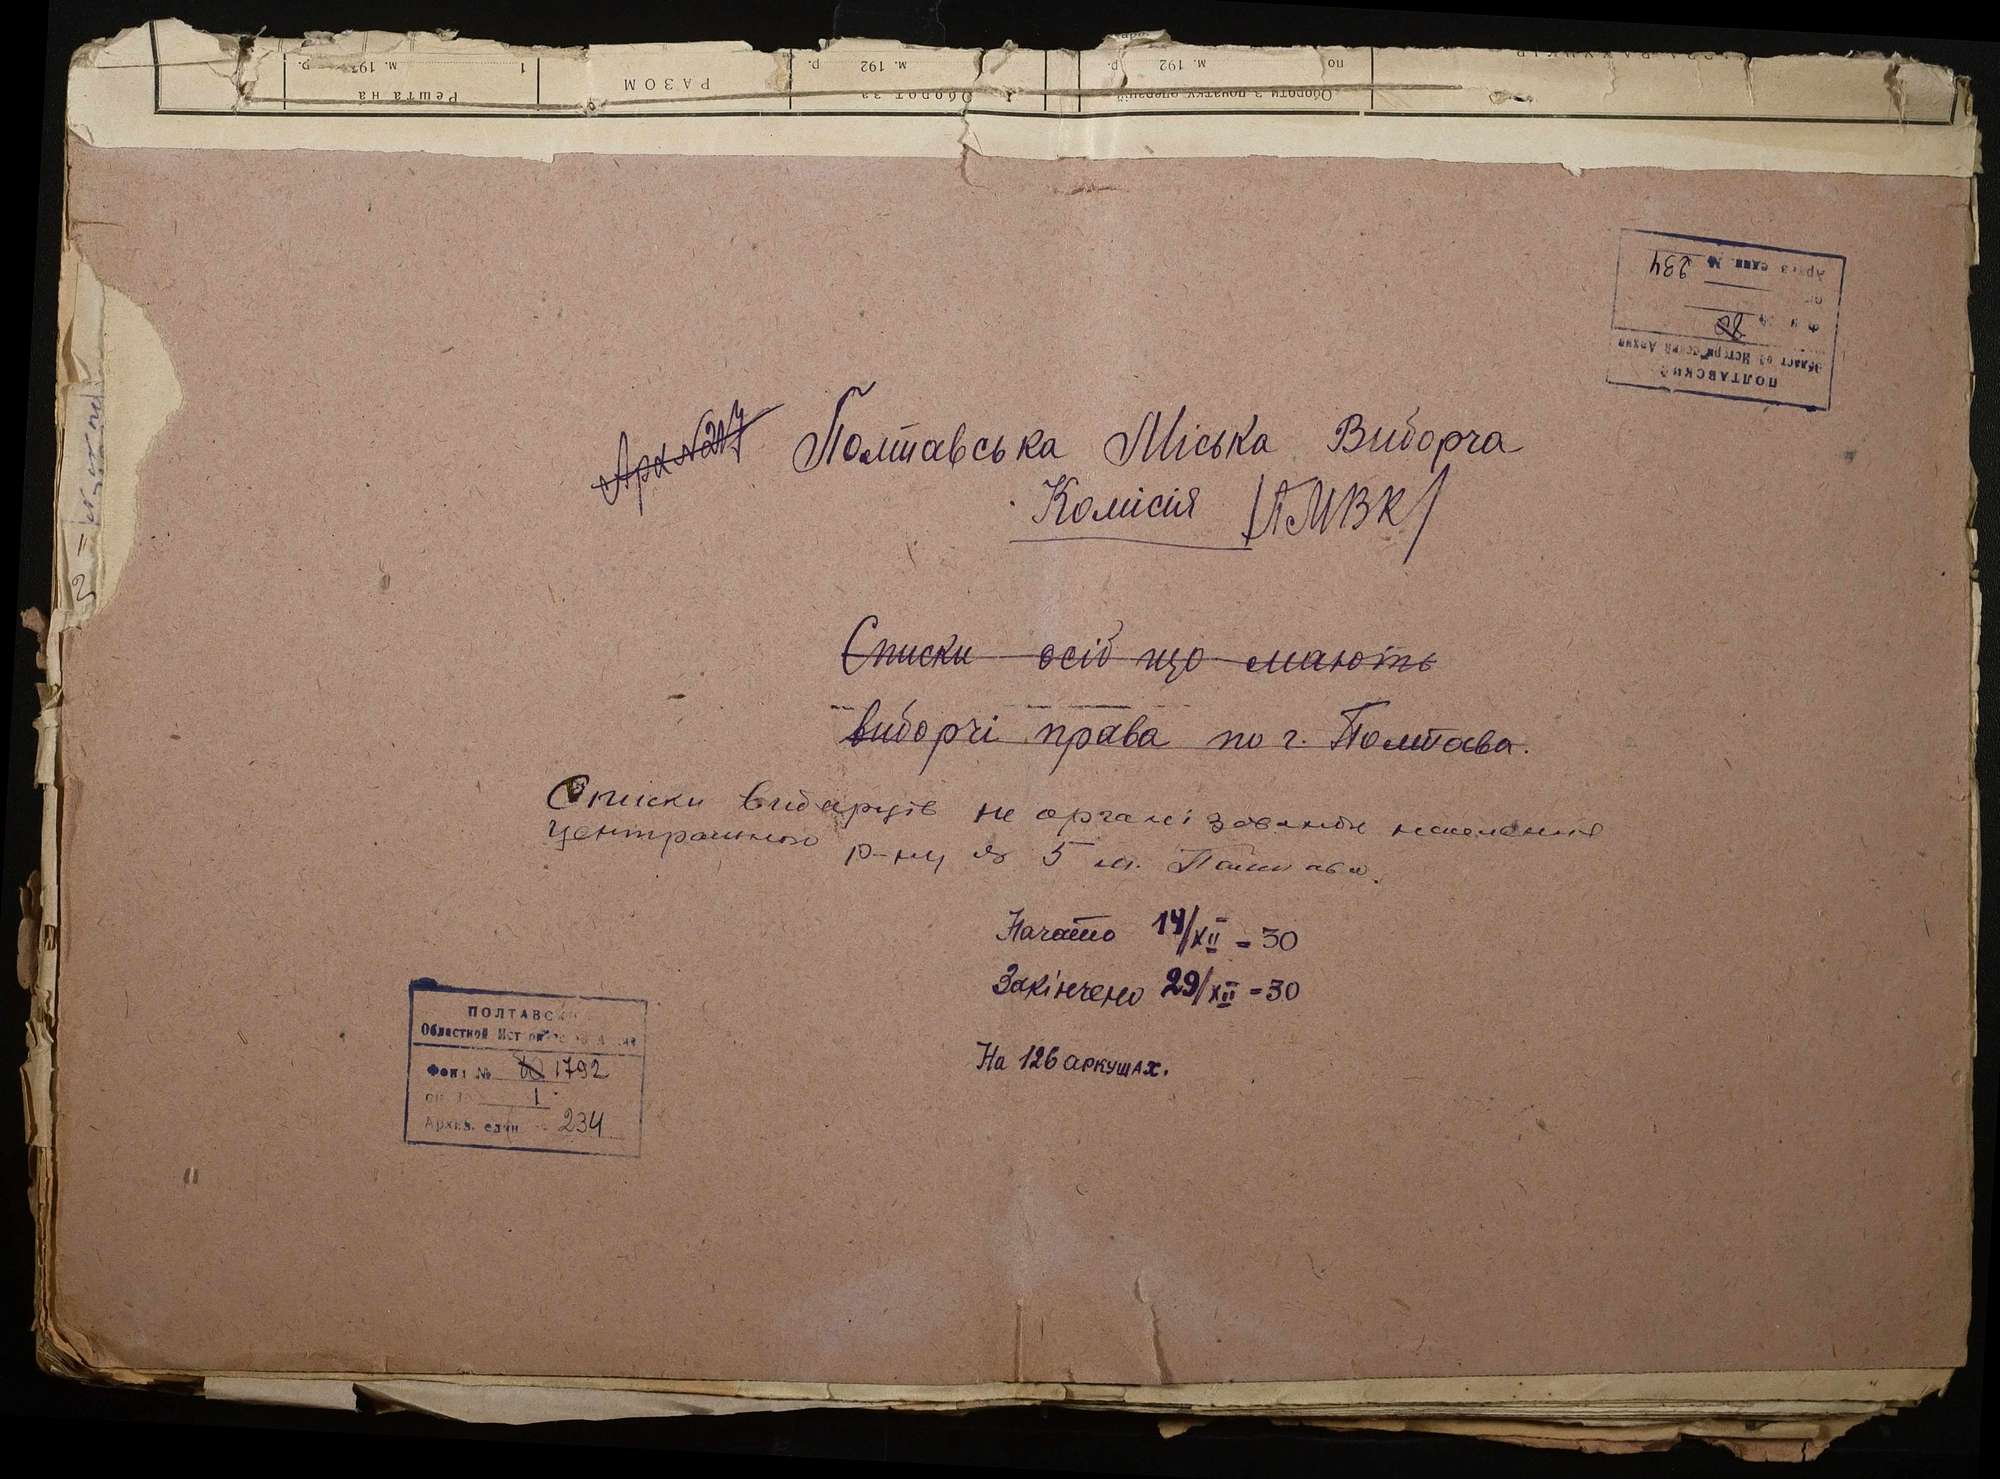 Решта на
1 м. 192 р.
РАЗОМ
Оборот за
м. 192 р.
Обороти з початку операцій
по м. 192 р.
ПОЛТАВСКИЙ
Областной Исторический Архив
Фонд №
оп.
Архив. един. № 234
Арх №217
Полтавська Міська Виборча
Комісія /ПМВК/
Списки осіб що мають
виборчі права по г. Полтава.
Списки виборців не організованого населення
Центрального р-ну № 5 м. Полтава.
Начато 14/XII = 30
Закінчено 29/XII = 30
На 126 аркушах.
ПОЛТАВСКИЙ
Областной Исторический Архив
Фонд № 1792
оп. № 1
Архив. един. № 234